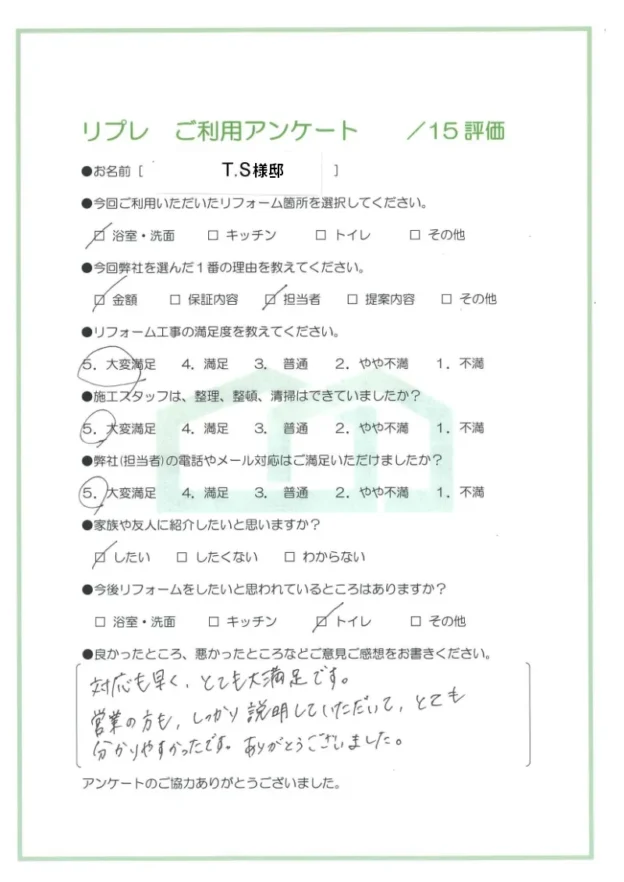 リプレ ご利用アンケート /15評価
●お名前 [ T.S様邸 ]
●今回ご利用いただいたリフォーム箇所を選択してください。
☑ 浴室・洗面 □ キッチン □ トイレ □ その他
●今回弊社を選んだ1番の理由を教えてください。
☑ 金額 □ 保証内容 ☑ 担当者 □ 提案内容 □ その他
●リフォーム工事の満足度を教えてください。
5. 大変満足 4. 満足 3. 普通 2. やや不満 1. 不満
●施工スタッフは、整理、整頓、清掃はできていましたか？
5. 大変満足 4. 満足 3. 普通 2. やや不満 1. 不満
●弊社(担当者)の電話やメール対応はご満足いただけましたか？
5. 大変満足 4. 満足 3. 普通 2. やや不満 1. 不満
●家族や友人に紹介したいと思いますか？
☑ したい □ したくない □ わからない
●今後リフォームをしたいと思われているところはありますか？
□ 浴室・洗面 □ キッチン ☑ トイレ □ その他
●良かったところ、悪かったところなどご意見ご感想をお書きください。
対応も早く、とても大満足です。
営業の方も、しっかり説明していただいて、とても
分かりやすかったです。ありがとうございました。
アンケートのご協力ありがとうございました。